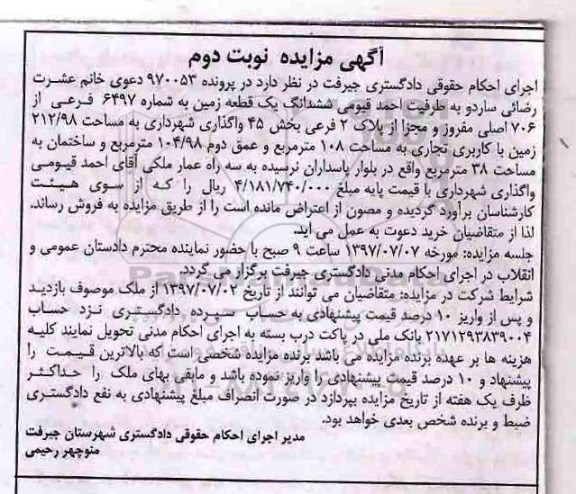 آگهی مزایده نوبت دوم
اجرای احکام حقوقی دادگستری جیرفت در نظر دارد در پرونده ۹۷۰۰۵۳ دعوی خانم عشرت
رضائی ساردو به طرفیت احمد قیومی ششدانگ یک قطعه زمین به شماره ۶۴۹۷ فرعی از
۷۰۶ اصلی مفروز و مجزا از پلاک ۲ فرعی بخش ۴۵ واگذاری شهرداری به مساحت ۲۱۲/۹۸
زمین با کاربری تجاری به مساحت ۱۰۸ مترمربع و عمق دوم ۱۰۴/۹۸ مترمربع و ساختمان به
مساحت ۳۸ مترمربع واقع در بلوار پاسداران نرسیده به سه راه عمار ملکی آقای احمد قیومی
واگذاری شهرداری با قیمت پایه مبلغ ۴/۱۸۱/۷۴۰/۰۰۰ ریال را که از سوی هیئت
کارشناسان برآورد گردیده و مصون از اعتراض مانده است را از طریق مزایده به فروش رساند.
لذا از متقاضیان خرید دعوت به عمل می آید.
جلسه مزایده: مورخه ۱۳۹۷/۰۷/۰۷ ساعت ۹ صبح با حضور نماینده محترم دادستان عمومی و
انقلاب در اجرای احکام مدنی دادگستری جیرفت برگزار می گردد.
شرایط شرکت در مزایده: متقاضیان می توانند از تاریخ ۱۳۹۷/۰۷/۰۲ از ملک موصوف بازدید
و پس از واریز ۱۰ درصد قیمت پیشنهادی به حساب سپرده دادگستری نزد حساب
۲۱۷۱۲۹۳۸۳۹۰۰۴ بانک ملی در پاکت درب بسته به اجرای احکام مدنی تحویل نمایند کلیه
هزینه ها بر عهده برنده مزایده می باشد برنده مزایده شخصی است که بالاترین قیمت را
پیشنهاد و ۱۰ درصد قیمت پیشنهادی را واریز نموده باشد و مابقی بهای ملک را حداکثر
ظرف یک هفته از تاریخ مزایده بپردازد در صورت انصراف مبلغ پیشنهادی به نفع دادگستری
ضبط و برنده شخص بعدی خواهد بود.
مدیر اجرای احکام حقوقی دادگستری شهرستان جیرفت
منوچهر رحیمی